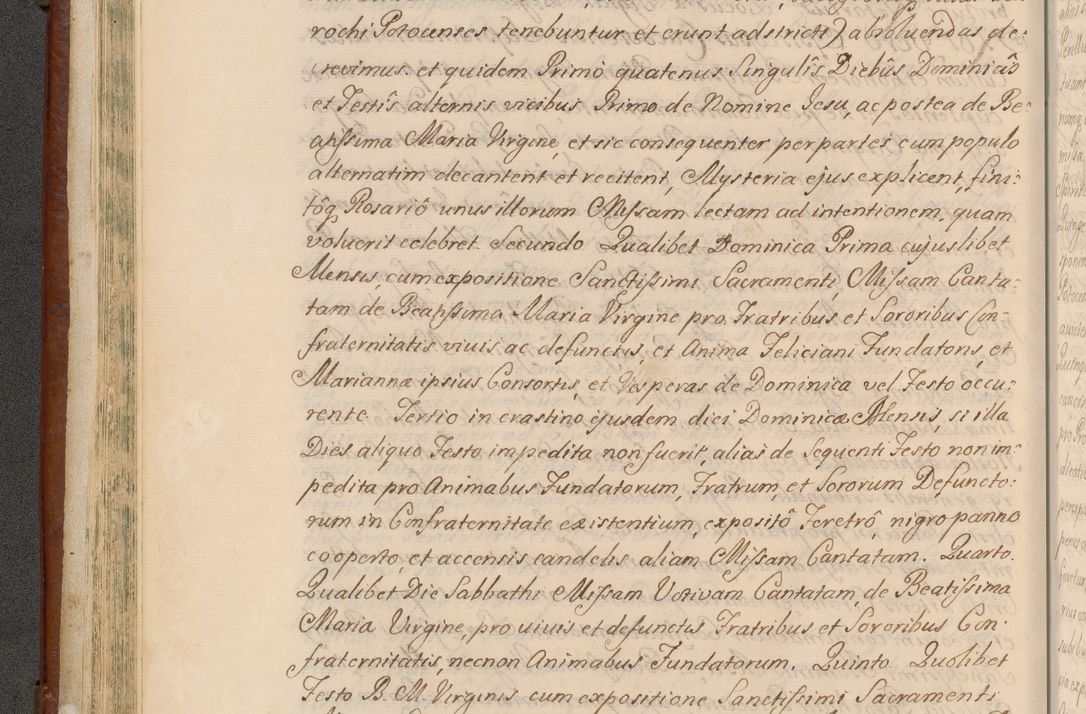 rochi Potocenses tenebuntur et erunt adstricti) absoluendas de:
crevimus. et quidem Primò quatenus Singulîs Diebûs Dominicîs
et Festîs alternis vicibus Primo de Nomine Jesu, ac postea de Be:
atissima Maria Virgine, et sic consequenter per partes cum populo
alternatim decantent et recitent, Mysteria ejus explicent, fini:
tôq Rosariô unus illorum Missam lectam ad intentionem. quam
voluerit celebret. Secundo Qualibet Dominica Prima cujuslibet
Mensis, cum expositione Sanctissimi Sacramenti, Missam Canta:
tam de Beatissima Maria Virgine pro Fratribus et Sororibus Con-
fraternitatis vivis ac defunctis, et Anima Feliciani Fundatoris, et
Mariannæ ipsius Consortis, et Vesperas de Dominica vel Festo occu:
rente. Tertio in crastino ejusdem diei Dominicæ Mensis, si illa
Dies aliquo Festo impedita non fuerit, alias de Sequenti Festo non im:
pedita pro Animabus Fundatorum, Fratrum, et Sororum Defuncto:
rum in Confraternitate existentium, expositô Feretrô, nigro panno
cooperto, et accensis candelis aliam Missam Cantatam. Quarto.
Qualibet Die Sabbathi Missam Votivam Cantatam, de Beatissima
Maria Virgine, pro vivis et defunctis Fratribus et Sororibus Con.
fraternitatis, necnon Animabus Fundatorum. Quinto Quolibet
Festo B. M. Virginis cum expositione Sanctissimi Sacramenti